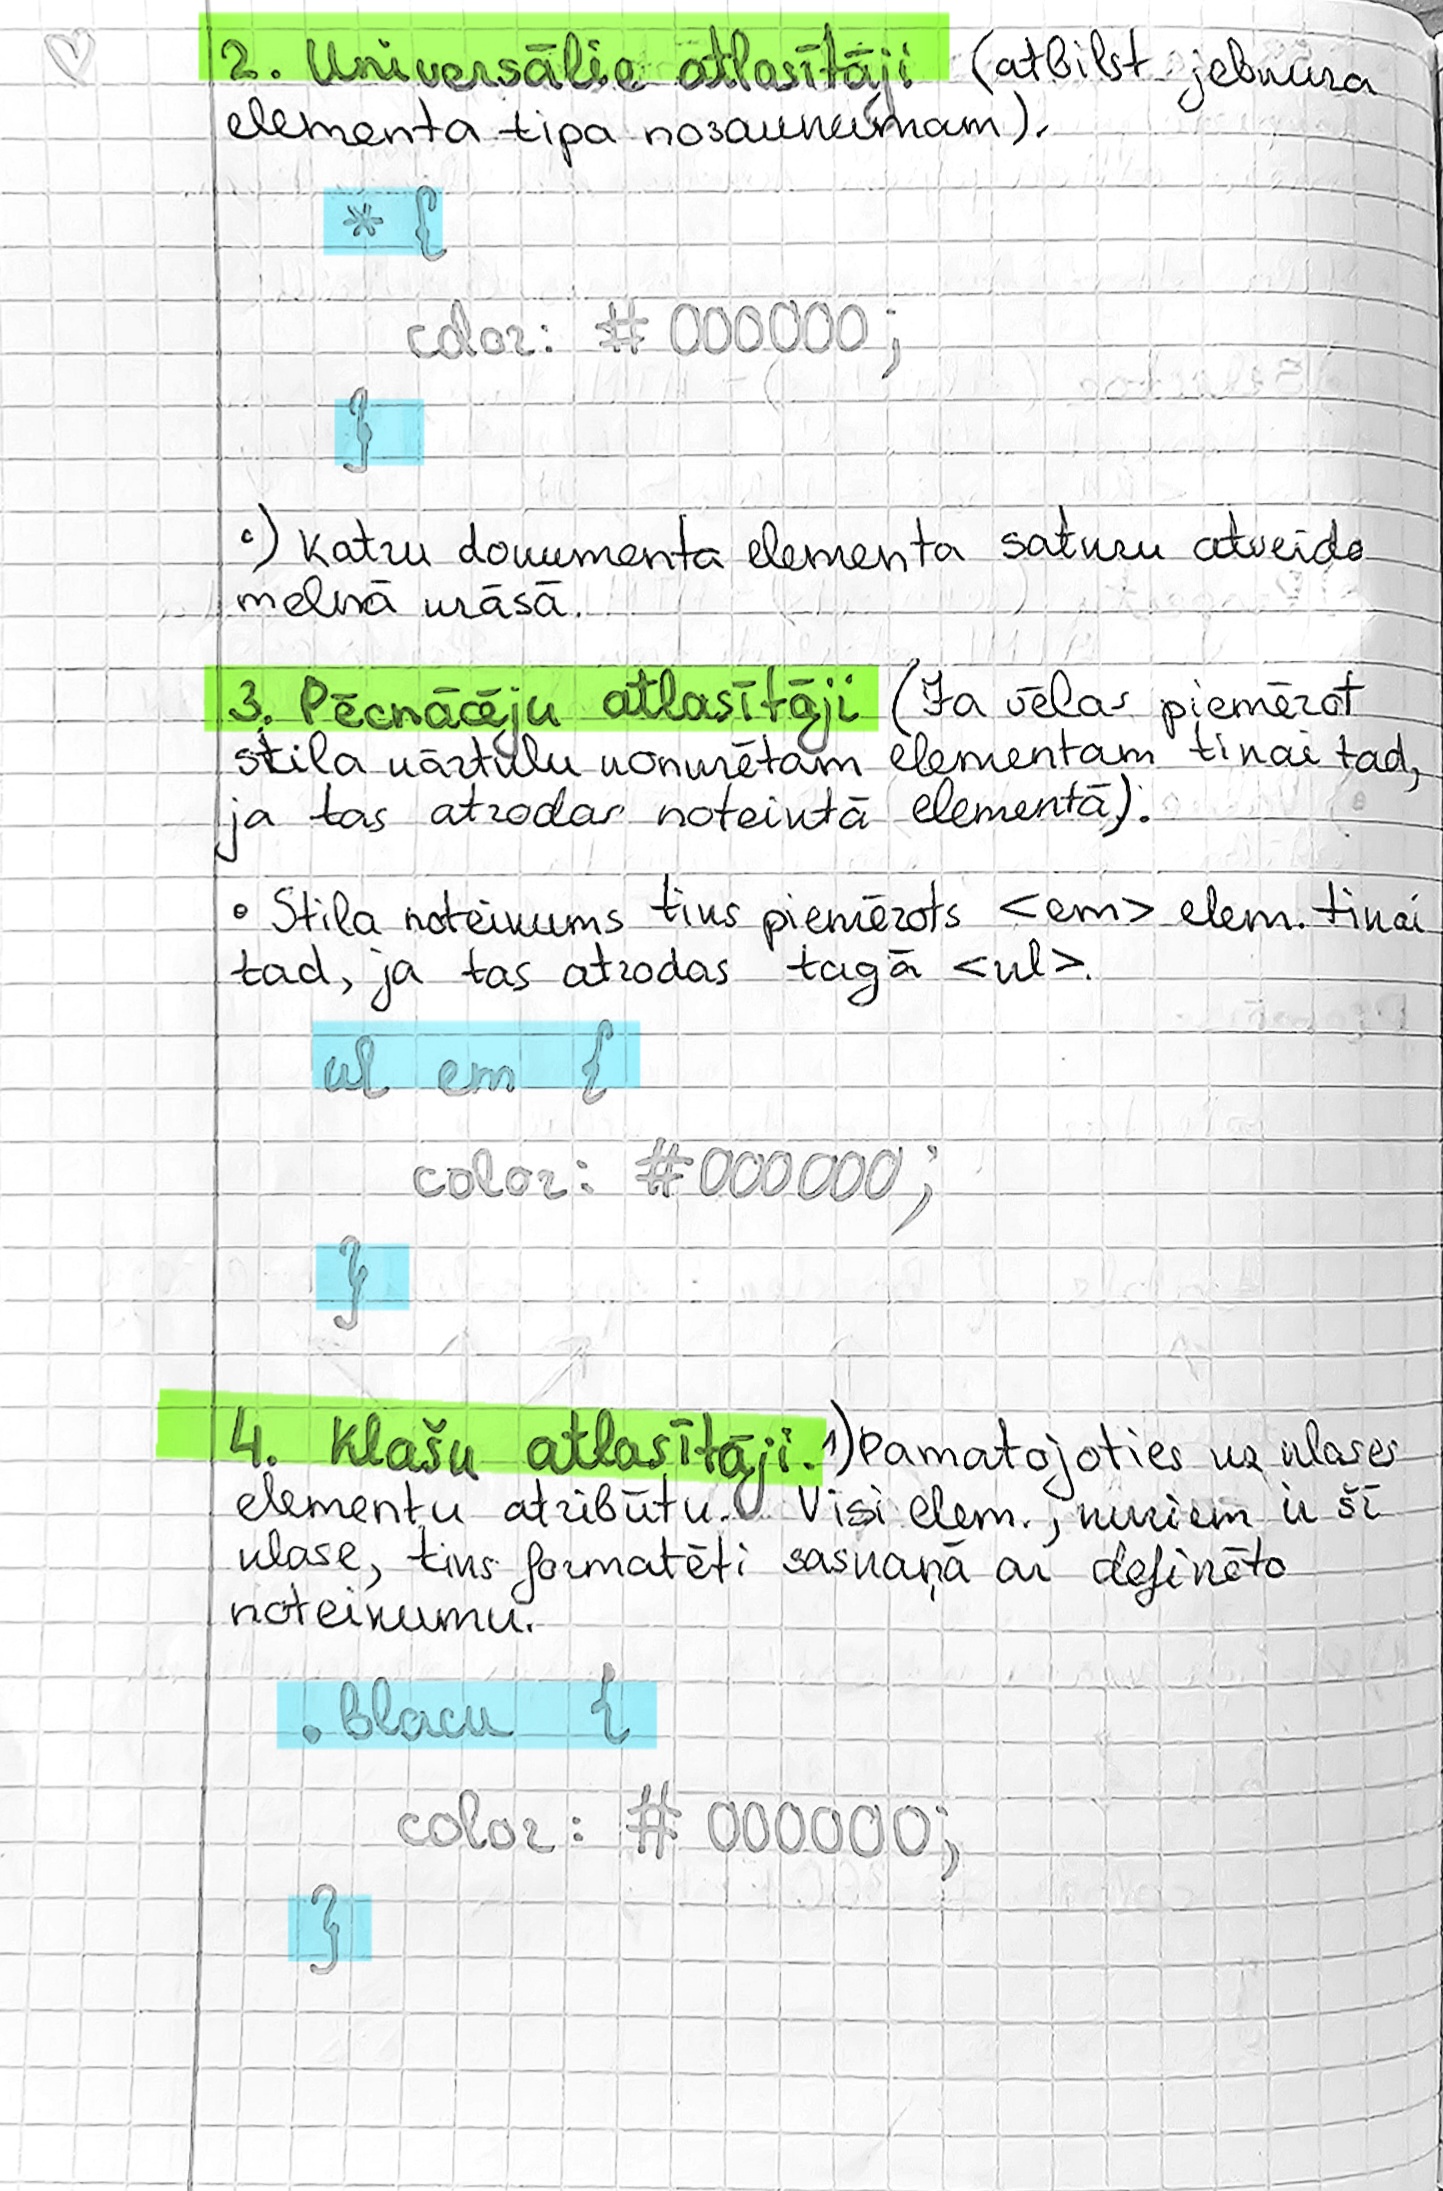 2. Universālie atlasītāji (atbilst jebkura
elementa tipa nosaukumam).
* {
color: # 000000;
}
•) Katru dokumenta elementa saturu atveido
melnā krāsā.
3. Pēcnācēju atlasītāji (Ja vēlas piemērot
stila kārtulu konkrētam elementam tikai tad,
ja tas atrodas noteiktā elementā).
• Stila noteikums tiks piemērots <em> elem. tikai
tad, ja tas atrodas tagā <ul>.
ul em {
color: #000000;
}
4. Klašu atlasītāji. 1) Pamatojoties uz klases
elementu atribūtu. Visi elem., kuriem ir šī
klase, tiks formatēti saskaņā ar definēto
noteikumu.
.black {
color: # 000000;
}